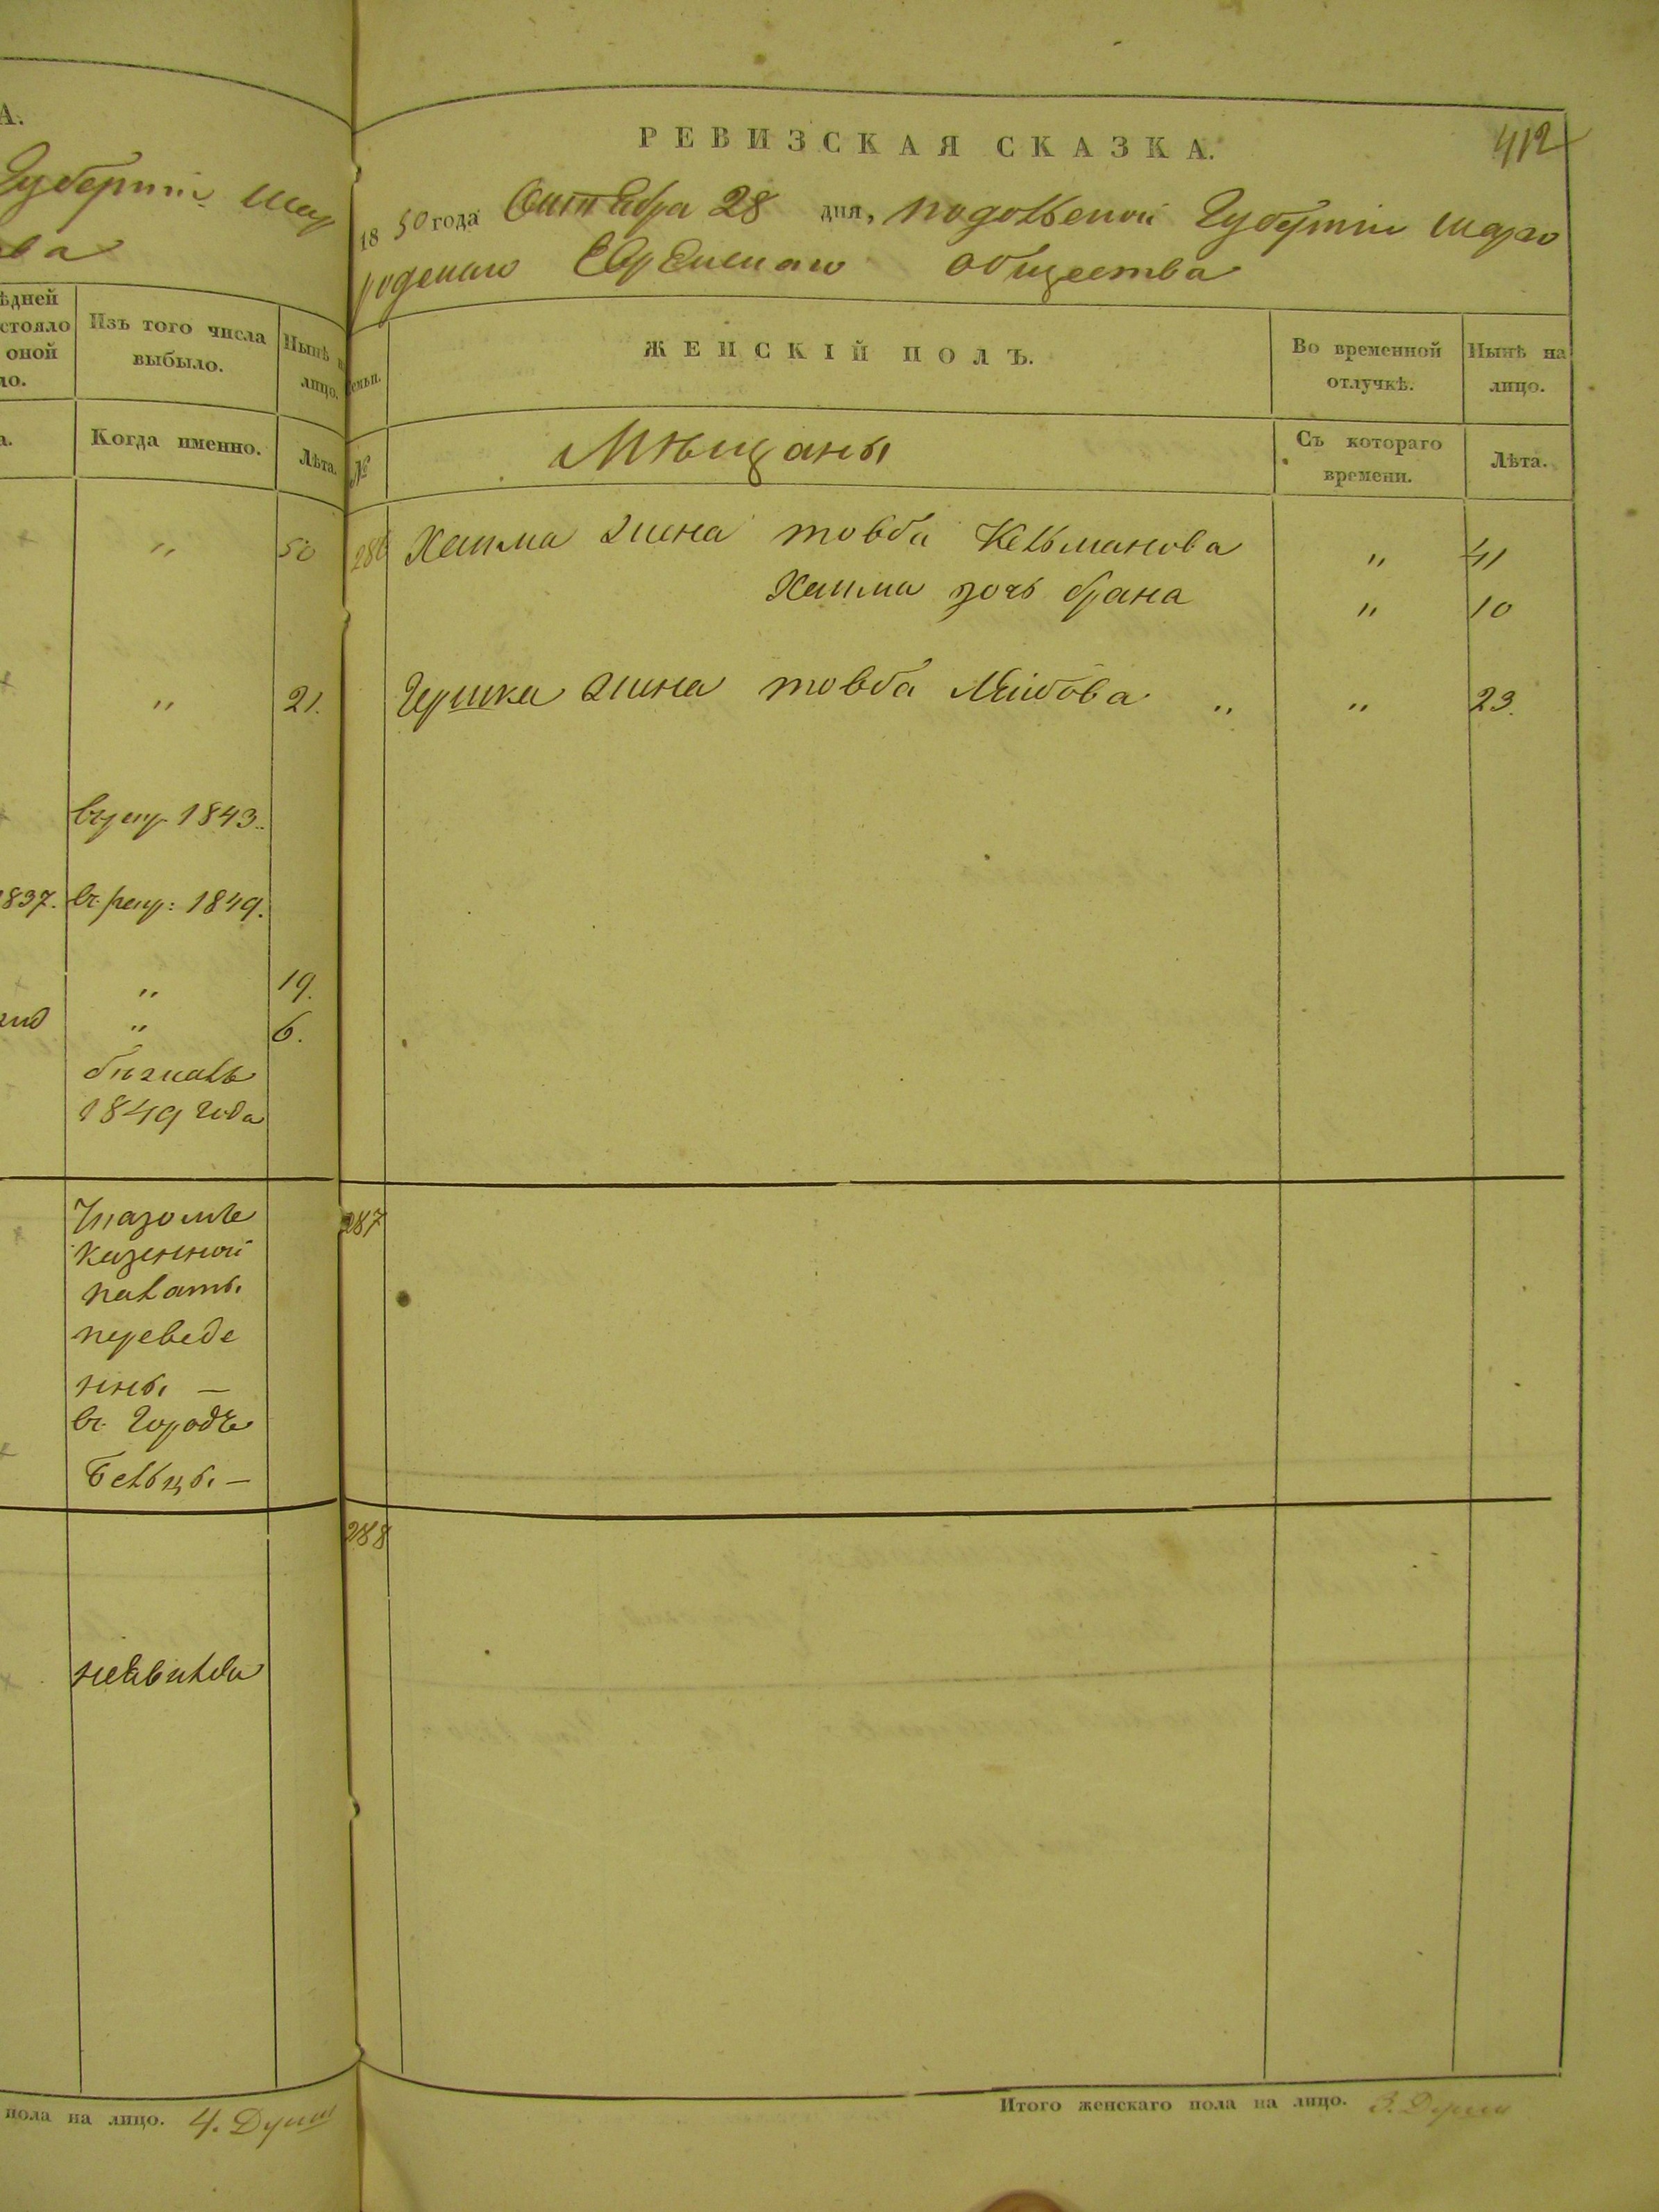 А.
Губерніи Шар
ва
ѣдней
стояло
оной
ло.
Изъ того числа
выбыло.
Нынѣ н
лицо.
а.
Когда именно.
Лѣта.
" 50
" 21.
1843.
1837. въ рекр: 1849.
" 19.
" 6.
бѣжалъ
1849 года
казенной
палаты
переведе
ны —
въ Городъ
Бельцы —
пола на лицо. 4. Душ
РЕВИЗСКАЯ СКАЗКА. 412
1850 года Октября 28 дня, Подольской Губерніи Шарго
родскаго Еврейскаго общества
семьи.
ЖЕНСКІЙ ПОЛЪ.
Во временной
отлучкѣ.
Нынѣ на
лицо.
№
Мѣщаны
Съ котораго
времени.
Лѣта.
286 Хаима жена товба Кельманова " 41
Хаима дочь брана " 10
Гершка жена товба Лейбова " " 23.
287
288
Итого женскаго пола на лицо. 3. Души